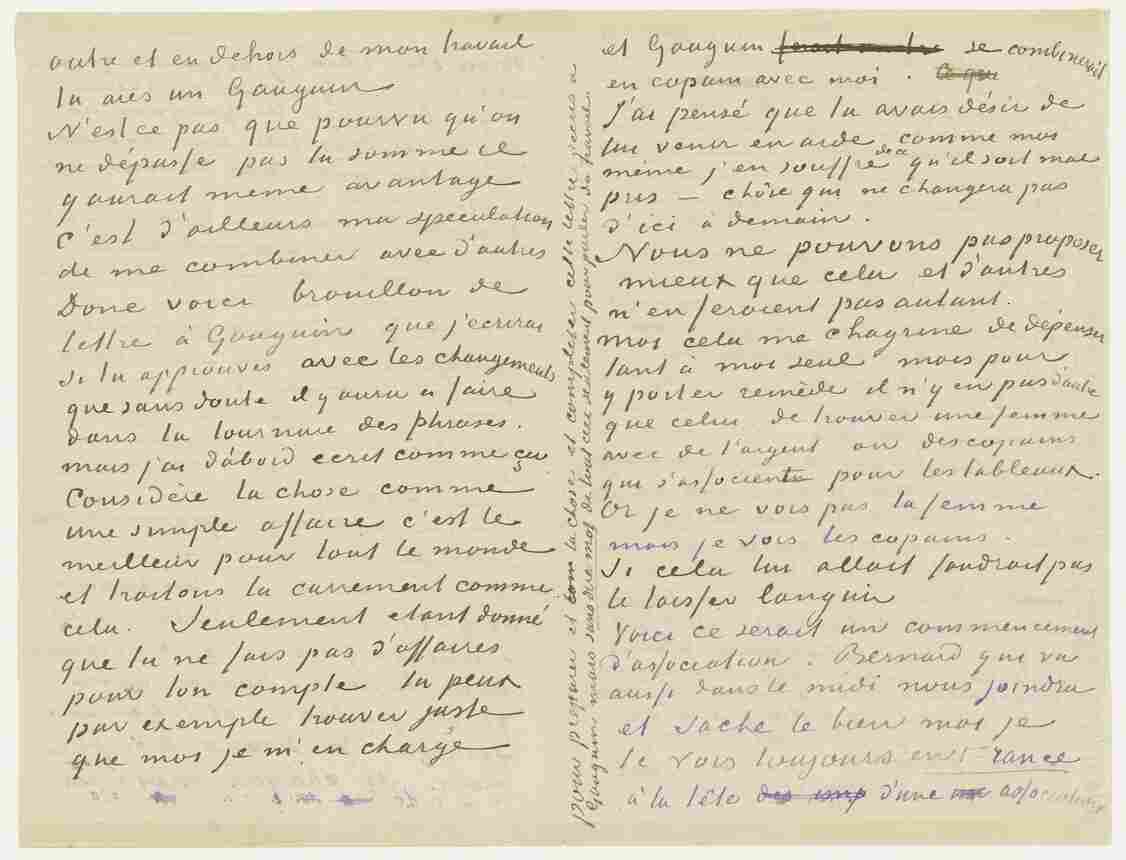 outre et en dehors de mon travail
tu aies un Gauguin
N'est ce pas que pourvu qu'on
ne dépasse pas la somme il
y aurait meme avantage
c'est d'ailleurs ma speculation
de me combiner avec d'autres
Donc voici brouillon de
lettre à Gauguin que j'ecrirai
si tu approuves avec les changements
que sans doute il y aura a faire
dans la tournure des phrases.
mais j'ai d'abord ecrit comme ça
Considère la chose comme
une simple affaire c'est le
meilleur pour tout le monde
et traitons la carrement comme
cela. Seulement etant donné
que tu ne fais pas d'affaires
pour ton compte tu peux
par exemple trouver juste
que moi je m'en charge
et Gauguin se combinerait
en copain avec moi. Ce que
J'ai pensé que tu avais désir de
lui venir en aide comme moi
même j'en souffre de ce qu'il soit mal
pris — chôse qui ne changera pas
d'ici à demain.
Nous ne pouvons pas proposer
mieux que cela et d'autres
n'en feraient pas autant.
Moi cela me chagrine de dépenser
tant à moi seul mais pour
y porter remède il n'y en pas d'autre
que celui de trouver une femme
avec de l'argent ou des copains
qui s'associent pour les tableaux.
Or je ne vois pas la femme
mais je vois les copains.
Si cela lui allait faudrait pas
le laisser languir
Voici ce serait un commencement
d'association. Bernard qui va
aussi dans le midi nous joindra
et sache le bien moi je
te vois toujours en France
à la tête d'une association
Pour préparer et com la chose et completer cette lettre j'ecris à
Gauguin mais sans dire mot de tout ceci seulement pour parler du travail.